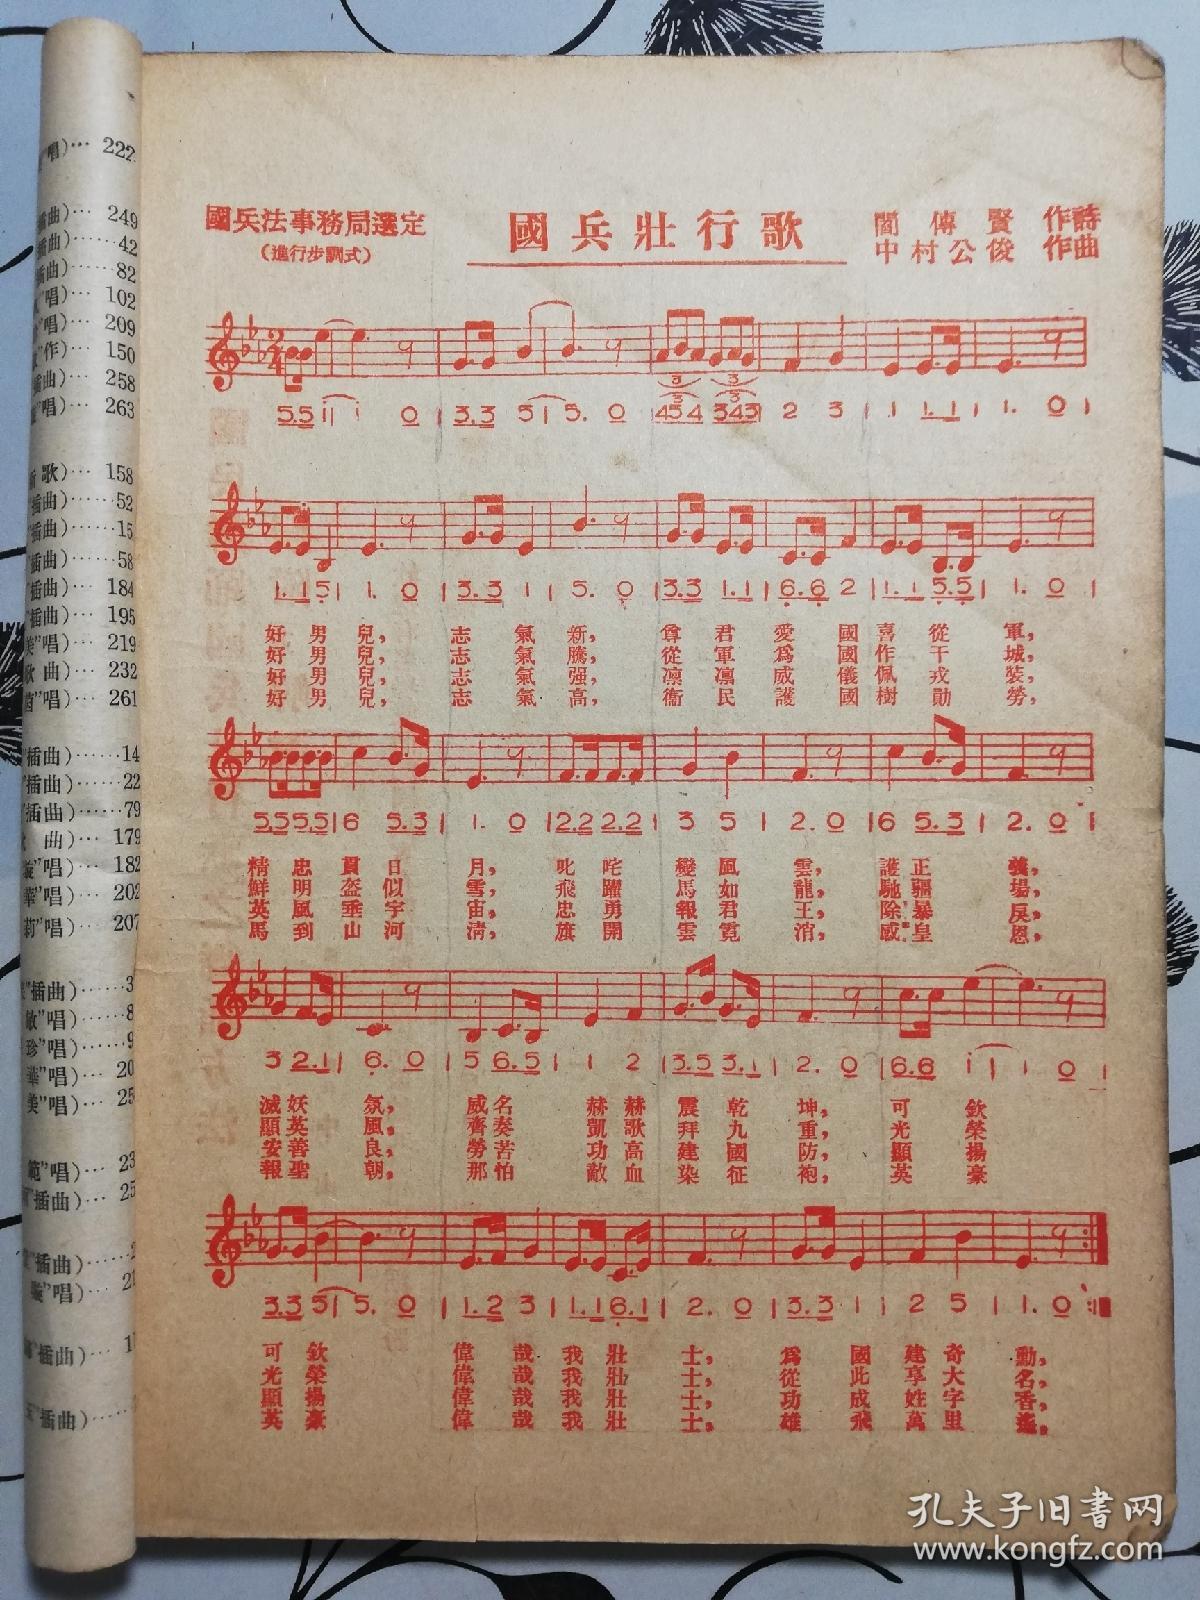 唱)… 222
插曲)… 249
插曲)… 42
插曲)… 82
"唱)… 102
"唱)… 209
"作)… 150
插曲)… 258
"唱)… 263
新歌)… 158
"插曲)… 52
"插曲)… 15
"插曲)… 58
"插曲)… 184
"插曲)… 195
美"唱)… 219
歌曲)… 232
"唱)… 261
"插曲)…… 14
"插曲)…… 22
"插曲)…… 79
曲)… 179
璇"唱)… 182
華"唱)… 202
莉"唱)… 207
"插曲)…… 3
敏"唱)…… 8
珍"唱)…… 9
華"唱)… 20
美"唱)… 25
範"唱)… 23
"插曲)… 25
"插曲)……
璇"唱)… 21
"插曲)… 1
"插曲)……
國兵法事務局選定
(進行步調式)
國兵壯行歌
閻傳賢 作詩
中村公俊 作曲
2/4
5.5 i | i 0 | 3.3 5 | 5. 0 | 454 343 | 2 3 | 1 1.1 | 1. 0 |
1.1 5 | 1. 0 | 3.3 1 | 5. 0 | 3.3 1.1 | 6.6 2 | 1.1 5.5 | 1. 0 |
好男兒，志氣新，尊君愛國喜從軍，
好男兒，志氣騰，從軍爲國作干城，
好男兒，志氣强，凛凛威儀佩戎裝，
好男兒，志氣高，衞民護國樹勛勞，
5.5 5.5 | 6 5.3 | 1. 0 | 2.2 2.2 | 3 5 | 2. 0 | 6 5.3 | 2. 0 |
精忠貫日月，叱咤變風雲，護正義，
鮮明盔似雪，飛躍馬如龍，馳疆場，
英風垂宇宙，忠勇報君王，除暴戾，
馬到山河淸，旗開雲霓消，感皇恩，
3 2.1 | 6. 0 | 5 6.5 | 1 2 | 3.5 3.1 | 2. 0 | 6.6 i | i 0 |
滅妖氛，威名赫赫震乾坤，可欽
顯英風，齊奏凱歌拜九重，光榮
安善良，勞苦功高建國防，顯揚
報聖朝，那怕敵血染征袍，英豪
3.3 5 | 5. 0 | 1.2 3 | 1.1 6.1 | 2. 0 | 3.3 1 | 2 5 | 1. 0 :||
可欽 偉哉我壯士，爲國建奇勳，
光榮 偉哉我壯士，從此享大名，
顯揚 偉哉我壯士，功成姓字香，
英豪 偉哉我壯士，雄飛萬里遙，
孔夫子旧书网
www.kongfz.com